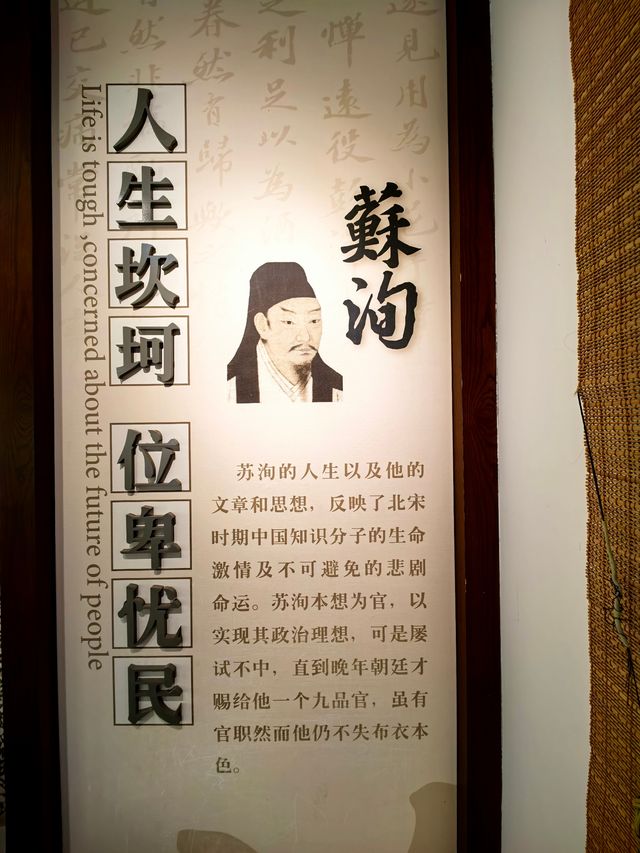 蘇洵
人生坎坷 位卑忧民
Life is tough ,concerned about the future of people
苏洵的人生以及他的
文章和思想，反映了北宋
时期中国知识分子的生命
激情及不可避免的悲剧
命运。苏洵本想为官，以
实现其政治理想，可是屡
试不中，直到晚年朝廷才
赐给他一个九品官，虽有
官职然而他仍不失布衣本
色。